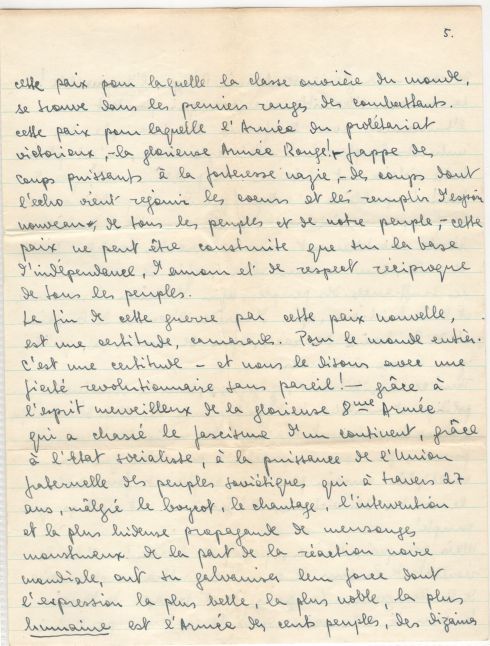 5.
cette paix pour laquelle la classe ouvrière du monde,
se trouve dans les premiers rangs des combattants.
cette paix pour laquelle l'Armée du prolétariat
victorieux, - la glorieuse Armée Rouge! - frappe des
coups puissants à la forteresse nazie, - des coups dont
l'echo vient rejouir les coeurs et les remplir d'espoir
nouveau, de tous les peuples et de notre peuple, - cette
paix ne peut être construite que sur la base
d'indépendance, d'amour et de respect réciproque
de tous les peuples.
La fin de cette guerre par cette paix nouvelle,
est une certitude, camarade. Pour le monde entier.
C'est une certitude - et nous le disons avec une
fierté revolutionnaire sans pareil! - grâce à
l'esprit merveilleux de la glorieuse 8me Armée
qui a chassé le fascisme d'un continent, grâce
à l'Etat socialiste, à la puissance de l'Union
fraternelle des peuples soviétiques qui à travers 27
ans, mâlgré le boycot, le chantage, l'intervention
et la plus hideuse propagande de mensonges
monstrueux de la part de la réaction noire
mondiale, ont su galvaniser leur force dont
l'expression la plus belle, la plus noble, la plus
humaine est l'Armée des cents peuples, des dizaines